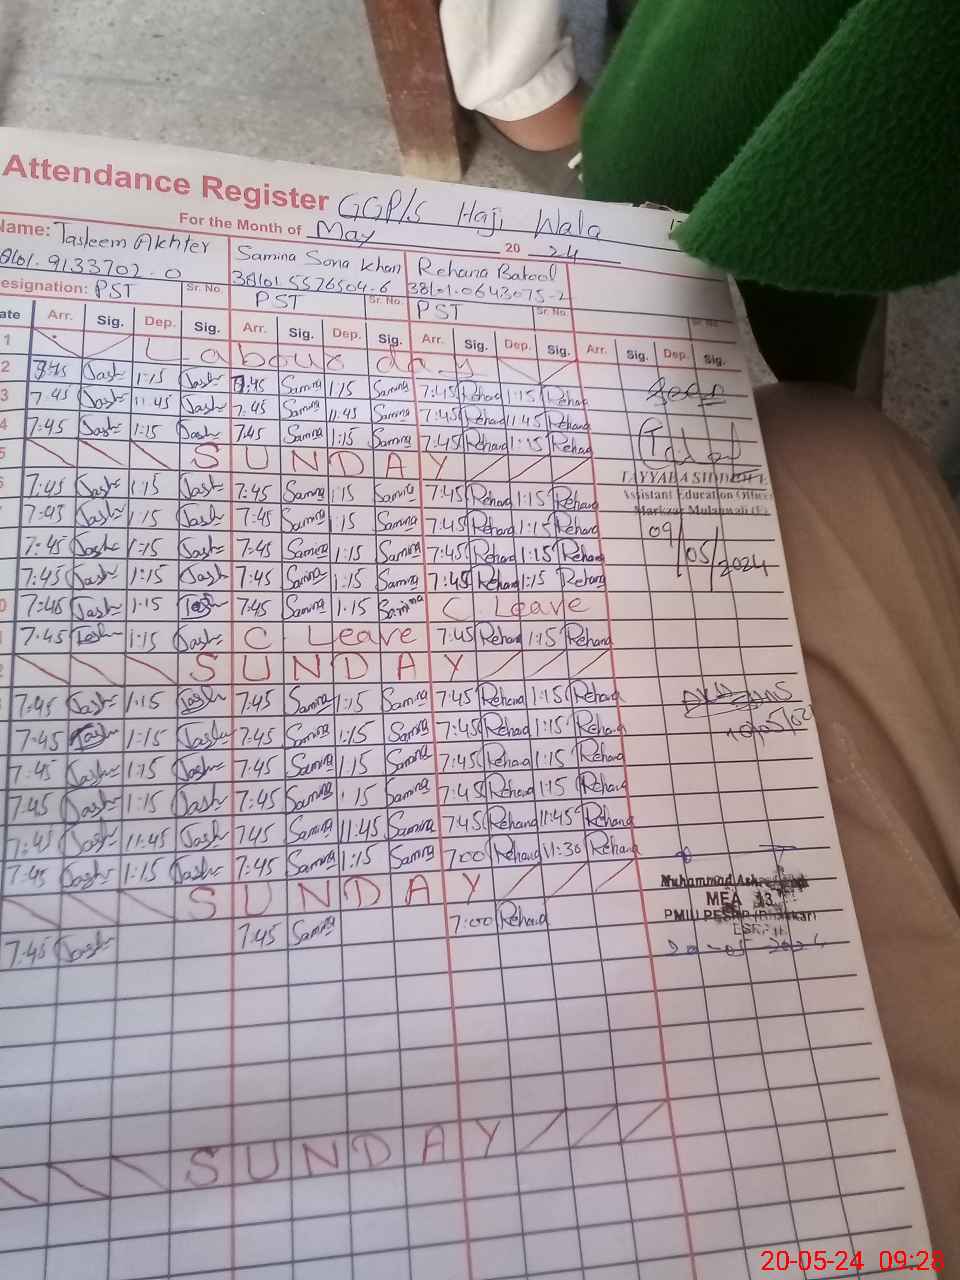 Attendance Register GGP/S Haji Wala
For the Month of May 20 24
Name: Tasleem Akhter Samina Sona Khan Rehana Batool
38101.5576504-6 38101.0643075-2
Designation: PST Sr. No. PST Sr. No. PST Sr. No. Sr. No.
Date Arr. Sig. Dep. Sig. Arr. Sig. Dep. Sig. Arr. Sig. Dep. Sig. Arr. Sig. Dep. Sig.
1 Labour day
2 7:45 Tash 1:15 Tash 7:45 Samina 1:15 Samina 7:45 Rehana 1:15 Rehana
3 7:45 Tash 11:45 Tash 7:45 Samina 11:45 Samina 7:45 Rehana 11:45 Rehana
4 7:45 Tash 1:15 Tash 7:45 Samina 1:15 Samina 7:45 Rehana 1:15 Rehana
5 SUNDAY
7:45 Tash 1:15 Tash 7:45 Samina 1:15 Samina 7:45 Rehana 1:15 Rehana
7:45 Tash 1:15 Tash 7:45 Samina 1:15 Samina 7:45 Rehana 1:15 Rehana
7:45 Tash 1:15 Tash 7:45 Samina 1:15 Samina 7:45 Rehana 1:15 Rehana
7:45 Tash 1:15 Tash 7:45 Samina 1:15 Samina 7:45 Rehana 1:15 Rehana
7:45 Tash 1:15 Tash 7:45 Samina 1:15 Samina C Leave
7:45 Tash 1:15 Tash C Leave 7:45 Rehana 1:15 Rehana
SUNDAY
7:45 Tash 1:15 Tash 7:45 Samina 1:15 Samina 7:45 Rehana 1:15 Rehana
7:45 Tash 1:15 Tash 7:45 Samina 1:15 Samina 7:45 Rehana 1:15 Rehana
7:45 Tash 1:15 Tash 7:45 Samina 1:15 Samina 7:45 Rehana 1:15 Rehana
7:45 Tash 1:15 Tash 7:45 Samina 1:15 Samina 7:45 Rehana 1:15 Rehana
7:45 Tash 11:45 Tash 7:45 Samina 11:45 Samina 7:45 Rehana 11:45 Rehana
7:45 Tash 1:15 Tash 7:45 Samina 1:15 Samina 7:00 Rehana 11:30 Rehana
SUNDAY
7:45 Tash 7:45 Samina 7:00 Rehana
SUNDAY
Seen
TAYYABA
Assistant Education Officer
Markaz
09/05/2024
Muhammad
MEA 13
PMIU PESRP
20-05-2024
20-05-24 09:28